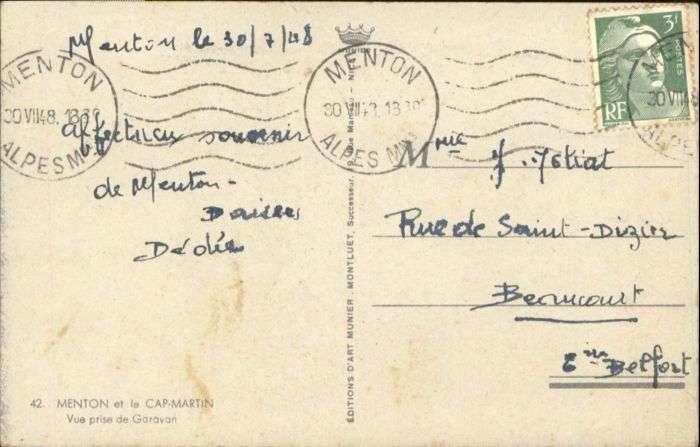 Menton le 30/7/48
MENTON
30 VII 48. 18 30
ALPES Mmes
MENTON
30 VII 48. 18 30
ALPES Mmes
3F
POSTES
RF
Affectueux souvenir
de Menton -
Baisers
Dédée
Mme J.
Rue de Saint-Dizier
Beaucourt
Belfort
ÉDITIONS D'ART MUNIER. MONTLUET, Successeur,
42. MENTON et le CAP-MARTIN
Vue prise de Garavan